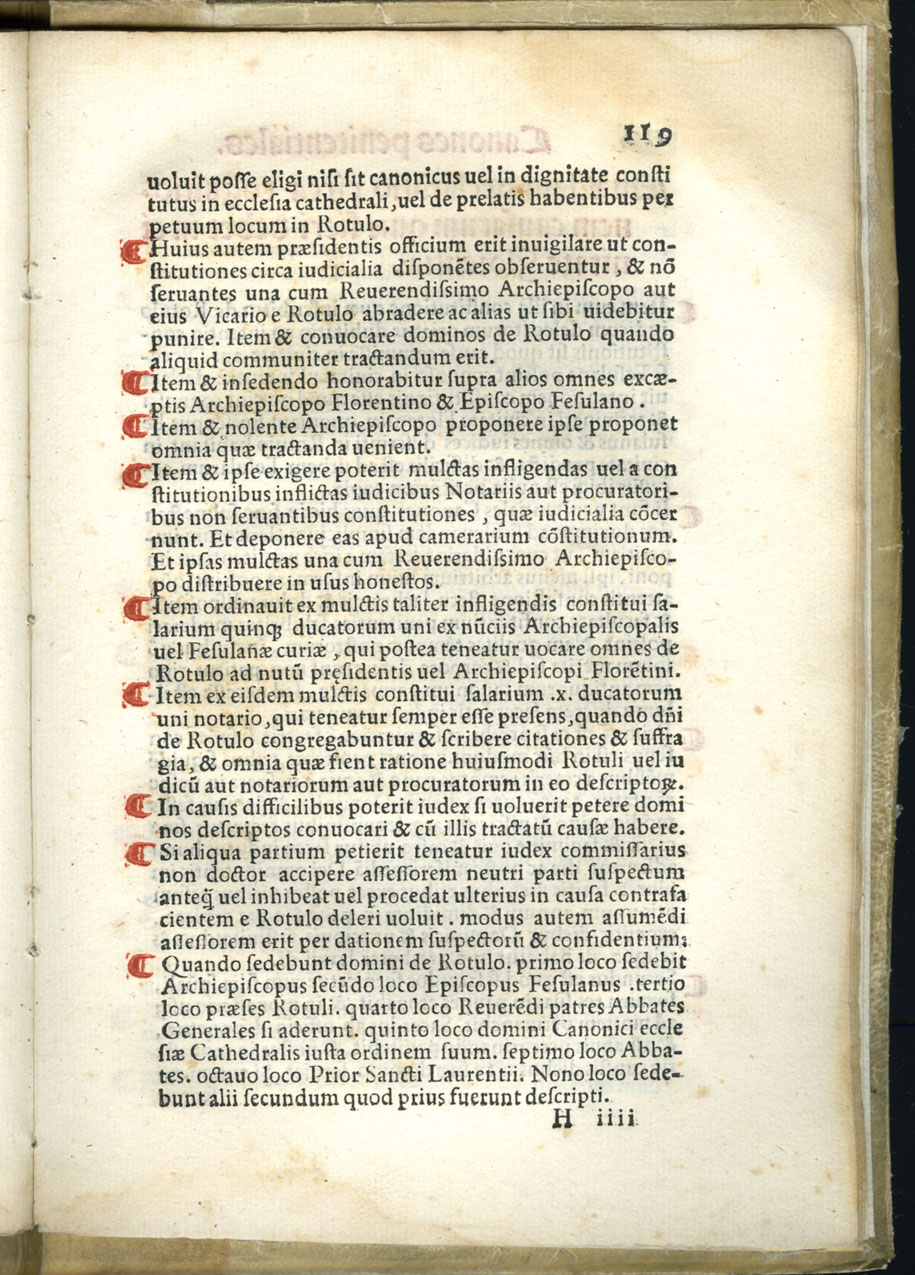 119
uoluit posse eligi nisi sit canonicus uel in dignitate consti
tutus in ecclesia cathedrali, uel de prelatis habentibus per
petuum locum in Rotulo.
¶ Huius autem præsidentis officium erit inuigilare ut con-
stitutiones circa iudicialia disponētes obseruentur, & nō
seruantes una cum Reuerendissimo Archiepiscopo aut
eius Vicario e Rotulo abradere ac alias ut sibi uidebitur
punire. Item & conuocare dominos de Rotulo quando
aliquid communiter tractandum erit.
¶ Item & insedendo honorabitur supra alios omnes excæ-
ptis Archiepiscopo Florentino & Episcopo Fesulano.
¶ Item & nolente Archiepiscopo proponere ipse proponet
omnia quæ tractanda uenient.
¶ Item & ipse exigere poterit mulctas infligendas uel a con
stitutionibus inflictas iudicibus Notariis aut procuratori-
bus non seruantibus constitutiones, quæ iudicialia cōcer
nunt. Et deponere eas apud camerarium cōstitutionum.
Et ipsas mulctas una cum Reuerendissimo Archiepisco-
po distribuere in usus honestos.
¶ Item ordinauit ex mulctis taliter infligendis constitui sa-
larium quinqꝫ ducatorum uni ex nūciis Archiepiscopalis
uel Fesulanæ curiæ, qui postea teneatur uocare omnes de
Rotulo ad nutū pręsidentis uel Archiepiscopi Florētini.
¶ Item ex eisdem mulctis constitui salarium .x. ducatorum
uni notario, qui teneatur semper esse presens, quando dñi
de Rotulo congregabuntur & scribere citationes & suffra
gia, & omnia quæ fient ratione huiusmodi Rotuli uel iu
dicū aut notariorum aut procuratorum in eo descriptoꝝ.
¶ In causis difficilibus poterit iudex si uoluerit petere domi
nos descriptos conuocari & cū illis tractatū causæ habere.
¶ Si aliqua partium petierit teneatur iudex commissarius
non doctor accipere assessorem neutri parti suspectum
anteq̄ uel inhibeat uel procedat ulterius in causa contrafa
cientem e Rotulo deleri uoluit. modus autem assumēdi
assessorem erit per dationem suspectorū & confidentium;
¶ Quando sedebunt domini de Rotulo. primo loco sedebit
Archiepiscopus secūdo loco Episcopus Fesulanus .tertio
loco præses Rotuli. quarto loco Reuerēdi patres Abbates
Generales si aderunt. quinto loco domini Canonici eccle
siæ Cathedralis iusta ordinem suum. septimo loco Abba-
tes. octauo loco Prior Sancti Laurentii. Nono loco sede-
bunt alii secundum quod prius fuerunt descripti.
H iiii